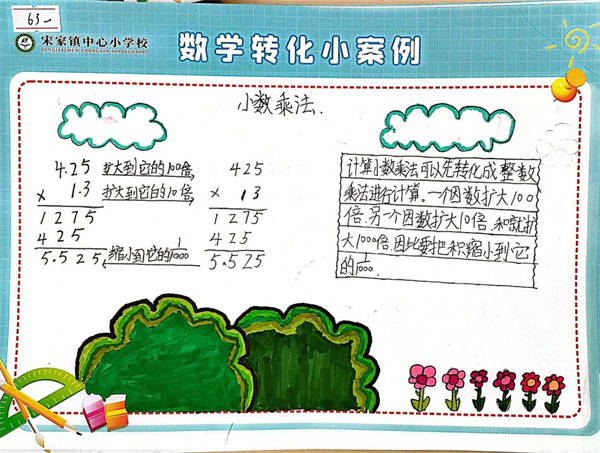 63一
宋家镇中心小学校
SONGJIAZHEN ZHONGXIN XIAOXUEXIAO
数学转化小案例
小数乘法.
4.25 扩大到它的100倍, 425
× 1.3 扩大到它的10倍, × 13
1275 1275
425 425
5.525 缩小到它的1/1000 5.525
计算小数乘法可以先转化成整数
乘法进行计算。一个因数扩大100
倍,另一个因数扩大10倍,和就扩
大1000倍,因此要把积缩小到它
的1/1000